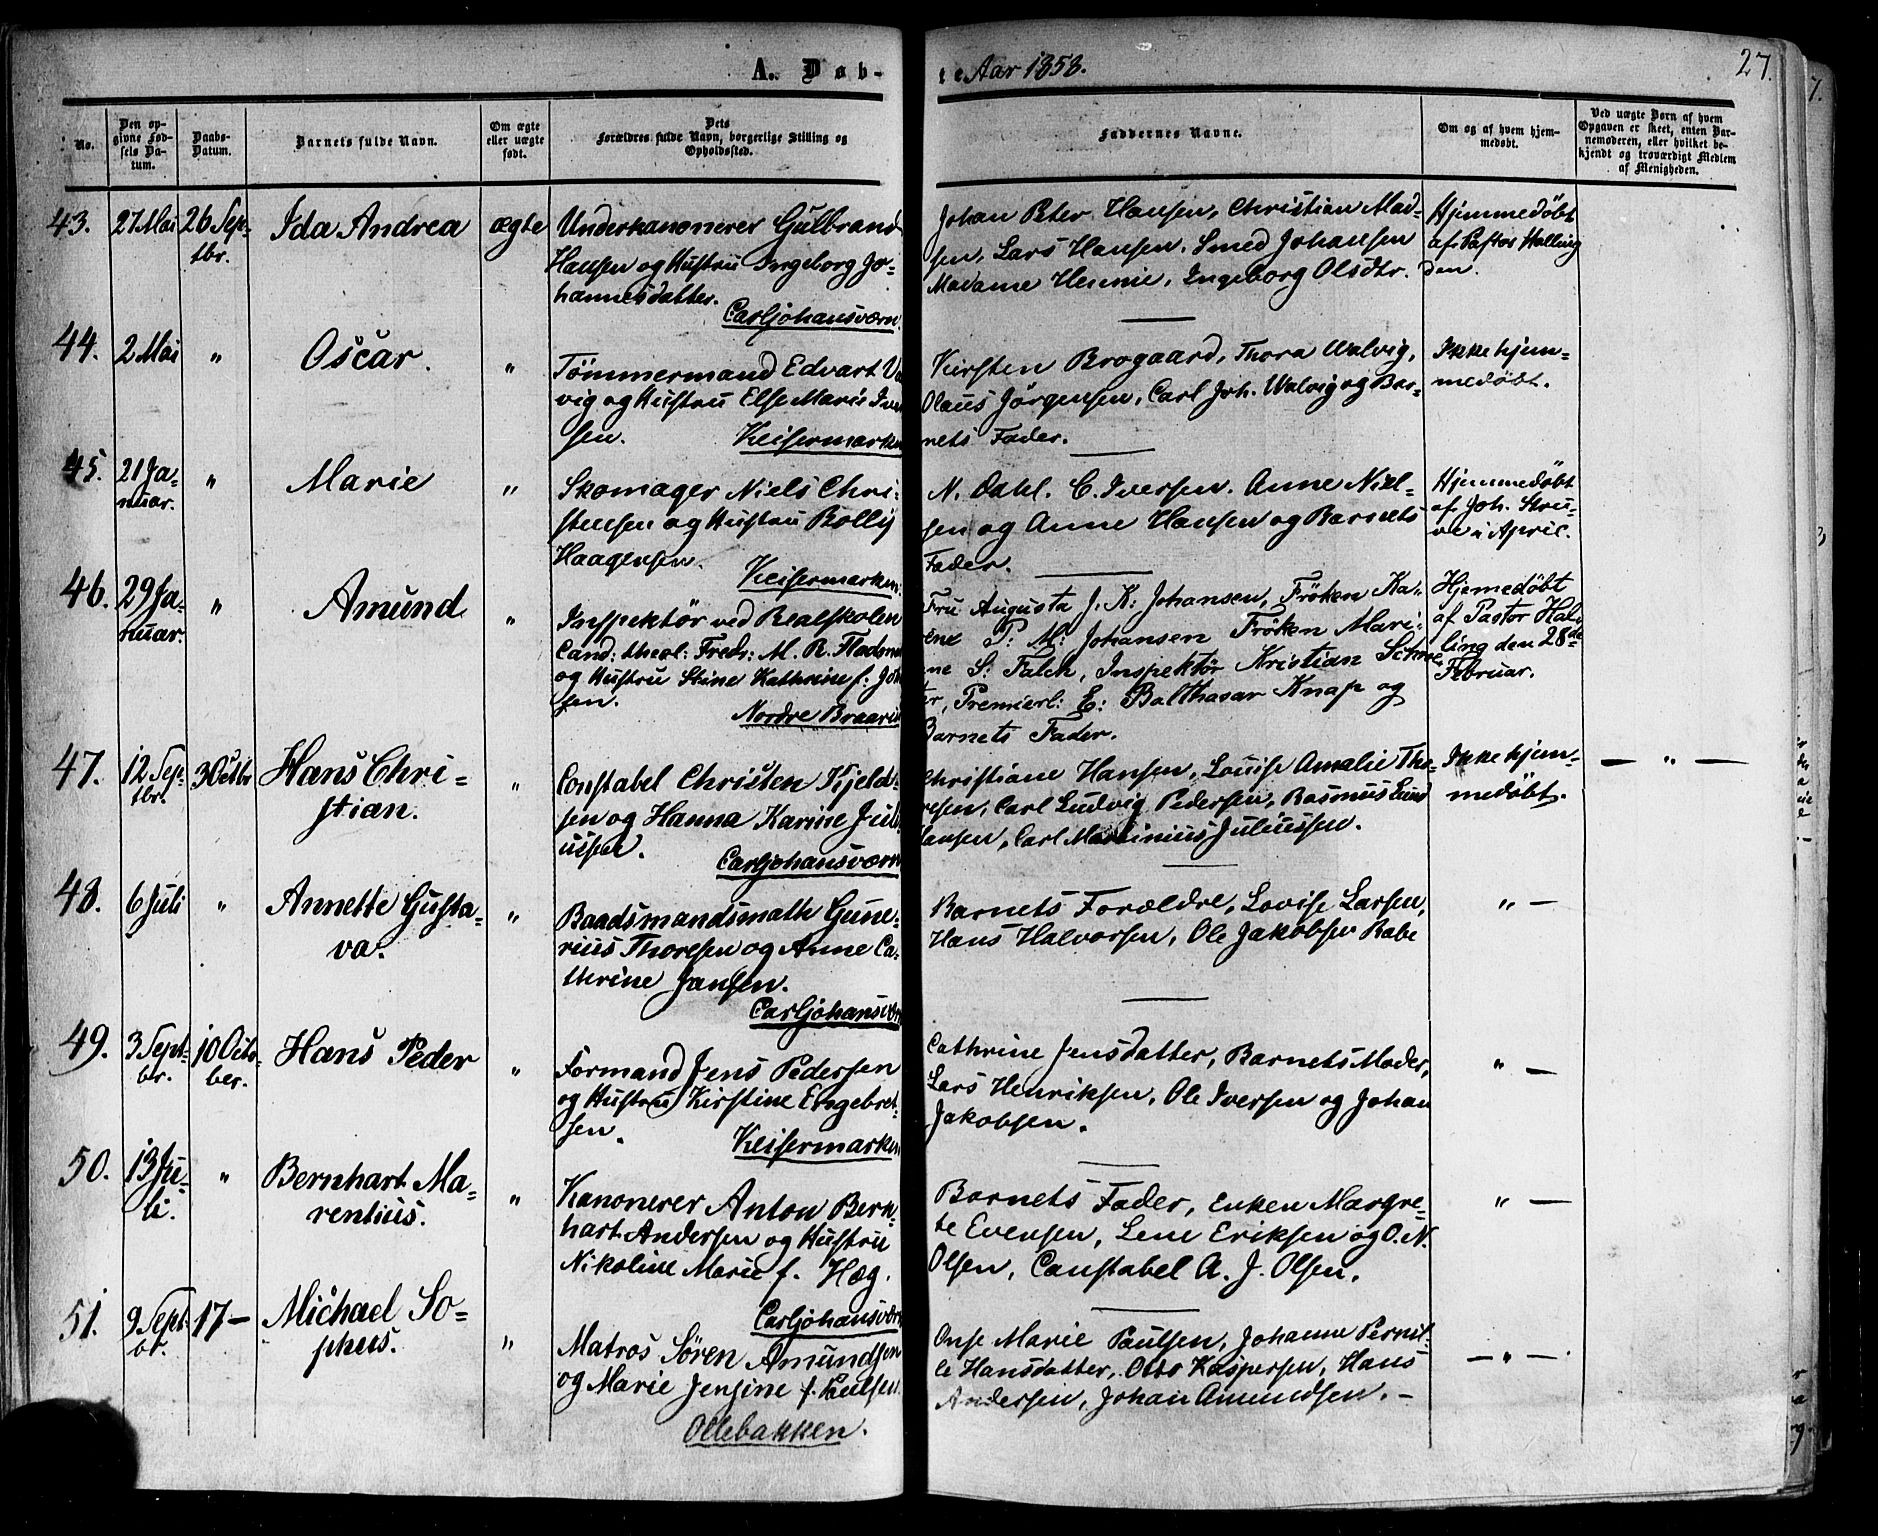 A. Døb-
te Aar 1858.
27.
No.
Den op-
givne Fød-
sels Da-
tum.
Daabs-
Datum.
Barnets fulde Navn.
Om ægte
eller uægte
født.
Dets
Forældres fulde Navn, borgerlige Stilling og
Opholdssted.
Faddernes Navne.
Om og af hvem hjem-
medøbt.
Ved uægte Børn af hvem
Opgaven er skeet, enten Bar-
nemoderen, eller hvilket be-
kjendt og troværdigt Medlem
af Menigheden.
43.
27 Mai
26 Sep-
tbr.
Ida Andrea
ægte
Underkanonerer Gulbrand
Hansen og Hustru Ingeborg Jo-
hannesdatter.
Carljohansværn.
Johan Peter Hansen, Christian Mad-
sen, Lars Hansen. Smed Johansen
Madame Hennie, Ingeborg Olsdtr.
Hjemmedøbt
af Pastor Halling
den.
44.
2 Mai
"
Oscar.
"
Tömmermand Edvart Va
vig og Hustru Else Marie Iver
sen.
Keisermarken
Kirsten Brogaard, Thora Walvig,
Olaus Jörgensen, Carl Joh. Walvig og Bar-
nets Fader.
Ikke hjem-
medøbt.
45.
21 Ja-
nuar.
"
Marie
"
Skomager Niels Chri-
stensen og Hustru Bolly
Haagensen.
Keisermarken.
N. Dahl. C. Iversen. Anne Niel-
sen og Anne Hansen og Barnets
Fader.
Hjemmedøbt
af Joh. Stru-
ve i April.
46.
29 Ja-
nuar.
"
Amund
"
Inspektör ved Realskolen
Cand: theol: Fredr: M. R.
og Hustru Stine Kathrine f. Joh
sen.
Nordre Braarud
Fru Augusta J. K. Johansen, Fröken Ka-
rene P. M. Johansen Fröken Mari-
ne S. Falch, Inspektör Kristian
Premierl: E: Balthasar Knap og
Barnets Fader.
Hjemedøbt
af Pastor Hal-
ling den 28de
Februar.
47.
12 Sep-
tbr.
3 Octbr
Hans Chri-
stian.
"
Constabel Christen Kjeld-
sen og Hanna Karine Juli
ussen.
Carljohansværn
Christiane Hansen, Louise Amalie Tho-
resen, Carl Ludvig Pedersen, Rasmus Lund
Hansen, Carl Martinius Juliussen.
Ikke hjem-
medøbt.
— " —
48.
6 Juli
"
Annette Gusta-
va.
"
Baadsmandsmath Gune-
rius Thoresen og Anne Ca-
thrine Jansen.
Carljohansværn
Barnets Forældre, Lovise Larsen,
Hans Halvorsen, Ole Jakobsen Rabe
" —
49.
3 Sept-
br.
10 Octo-
ber.
Hans Peder
"
Formand Jens Pedersen
og Hustru Kirstine Engebret-
sen.
Keisermarken
Cathrine Jensdatter, Barnets Moder,
Lars Henriksen, Ole Iversen og Johan
Jakobsen.
" —
50.
13 Ju-
li.
"
Bernhart Ma-
rentius.
"
Kanonerer Anton Bern-
hart Andersen og Hustru
Nikoline Marie f. Høg.
Carljohansværn
Barnets Fader, Enken Margre-
te Evensen, Lene Eriksen og O. N.
Olsen, Constabel A. J. Olsen.
" —
51.
9 Sept-
br.
17 —
Michael So-
phus.
"
Matros Sören Amundsen
og Marie Jensine f. Paulsen.
Ollebakken.
Onse Marie Paulsen, Johanne Pernil-
le Hansdatter, Otto Kaspersen, Hans
Andersen, Johan Amundsen. —
— " —